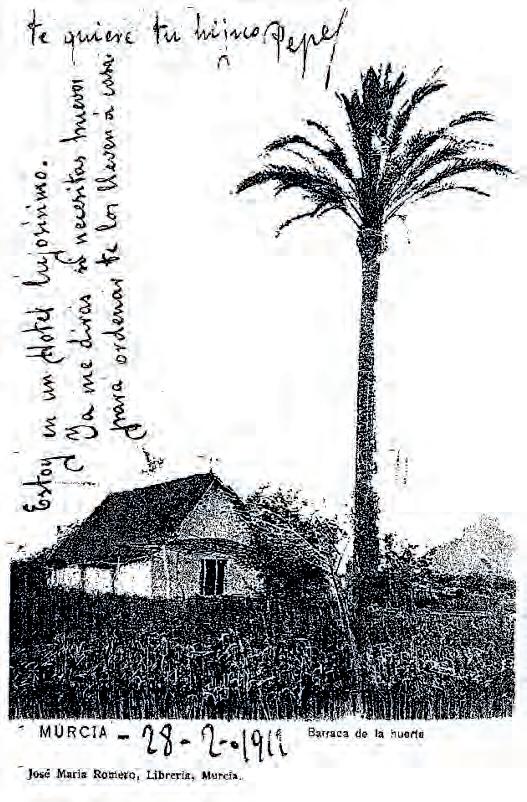 Estoy en un Hotel lujosísimo.
Ya me diras si necesitas huevos
para ordenar te los lleven a casa
te quiere tu hijico Pepe
MURCIA - 28-2-1911
Barraca de la huerta
José María Romero, Librería, Murcia.